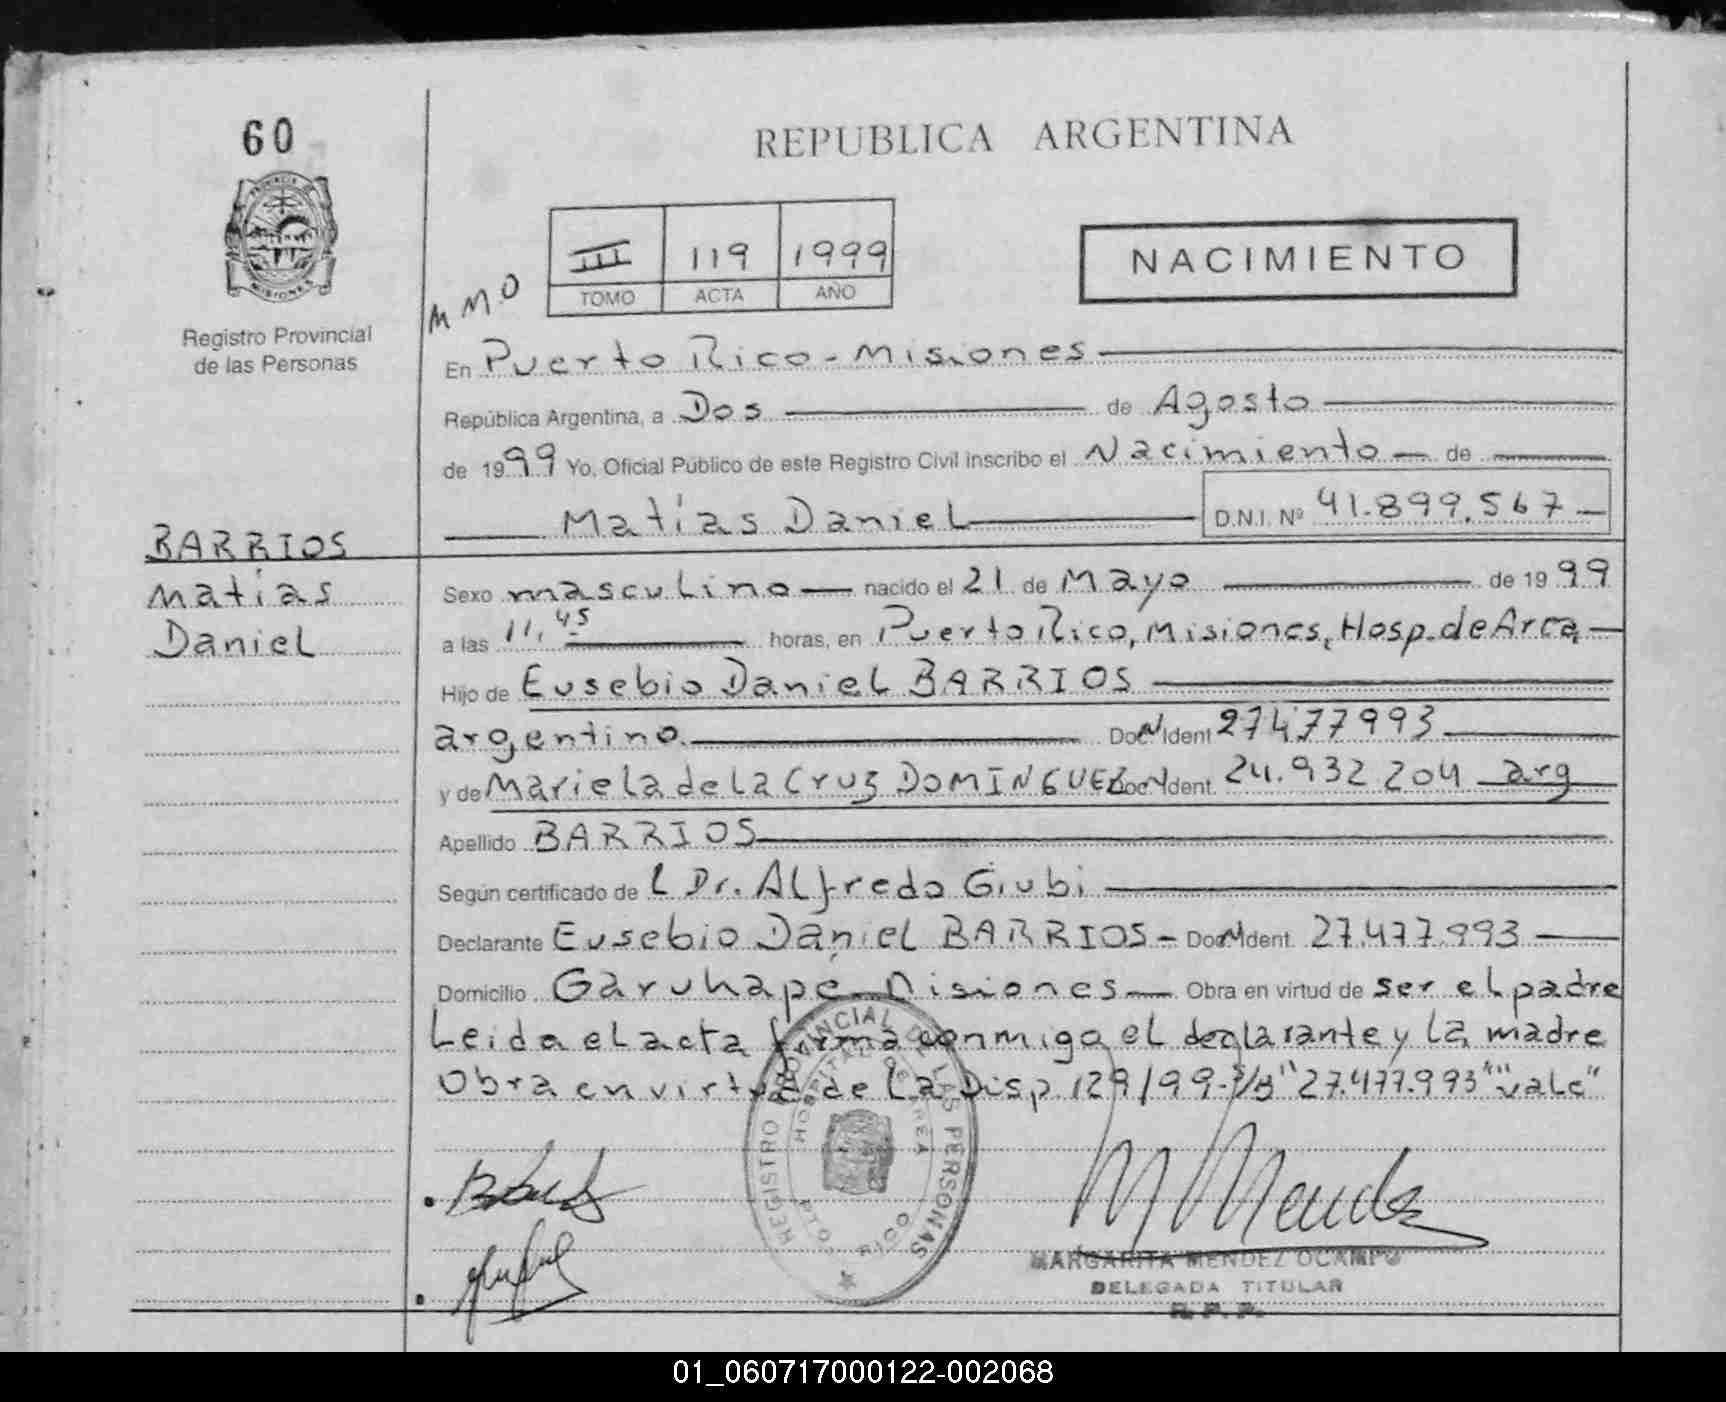 60
PROVINCIA DE
MISIONES
Registro Provincial
de las Personas
REPUBLICA ARGENTINA
III 119 1999
TOMO ACTA AÑO
NACIMIENTO
MMO
En Puerto Rico - Misiones
República Argentina, a Dos de Agosto
de 1999 Yo, Oficial Público de este Registro Civil inscribo el Nacimiento de
Matías Daniel D.N.I. Nº 41.899.567
BARRIOS
Matías
Daniel
Sexo masculino nacido el 21 de Mayo de 1999
a las 11,45 horas, en Puerto Rico, Misiones, Hosp. de Area
Hijo de Eusebio Daniel BARRIOS
argentino. Doc N Ident 27477993
y de Mariela de la Cruz DOMINGUEZ Doc N Ident. 24.932 204 arg
Apellido BARRIOS
Según certificado de L Dr. Alfredo Giubi
Declarante Eusebio Daniel BARRIOS - Doc N Ident. 27.477.993
Domicilio Garuhapé Misiones Obra en virtud de ser el padre
Leida el acta firma conmigo el declarante y la madre
Obra en virtud de la Disp. 129/99- "27.477.993" "vale"
REGISTRO PROVINCIAL DE LAS PERSONAS
HOSPITAL DE AREA
PTO. RICO
M Mendez
MARGARITA MENDEZ OCAMPO
DELEGADA TITULAR
R. P. P.
01_060717000122-002068